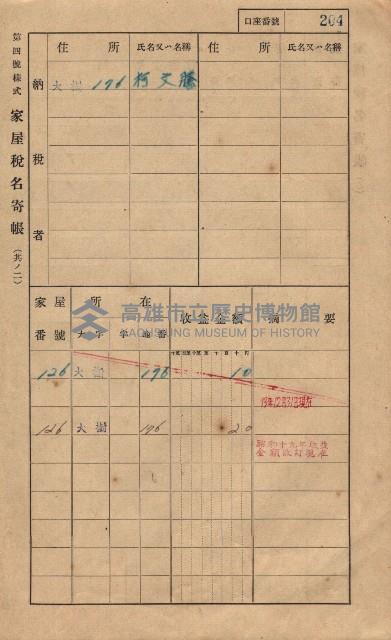 口座番號 204
第四號樣式
家屋稅名寄帳
(其ノ二)
納稅者
住所 氏名又ハ名稱 住所 氏名又ハ名稱
大樹 196 柯文騰
家屋番號 所在 大字 字 地番 收益金額 摘要
高雄市立歷史博物館
KAOHSIUNG MUSEUM OF HISTORY
126 大樹 196 10
19年12月31日現在
126 大樹 196 20
昭和十九年收益
金額改訂現在